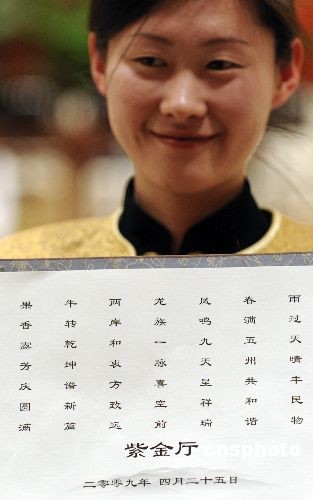 雨过天晴丰民物
春满五州共和谐
凤鸣九天呈祥瑞
龙族一脉喜空前
两岸和衷方致远
牛转乾坤谱新篇
果香蕊芳庆圆满
紫金厅
二零零九年 四月二十五日
cnsphoto